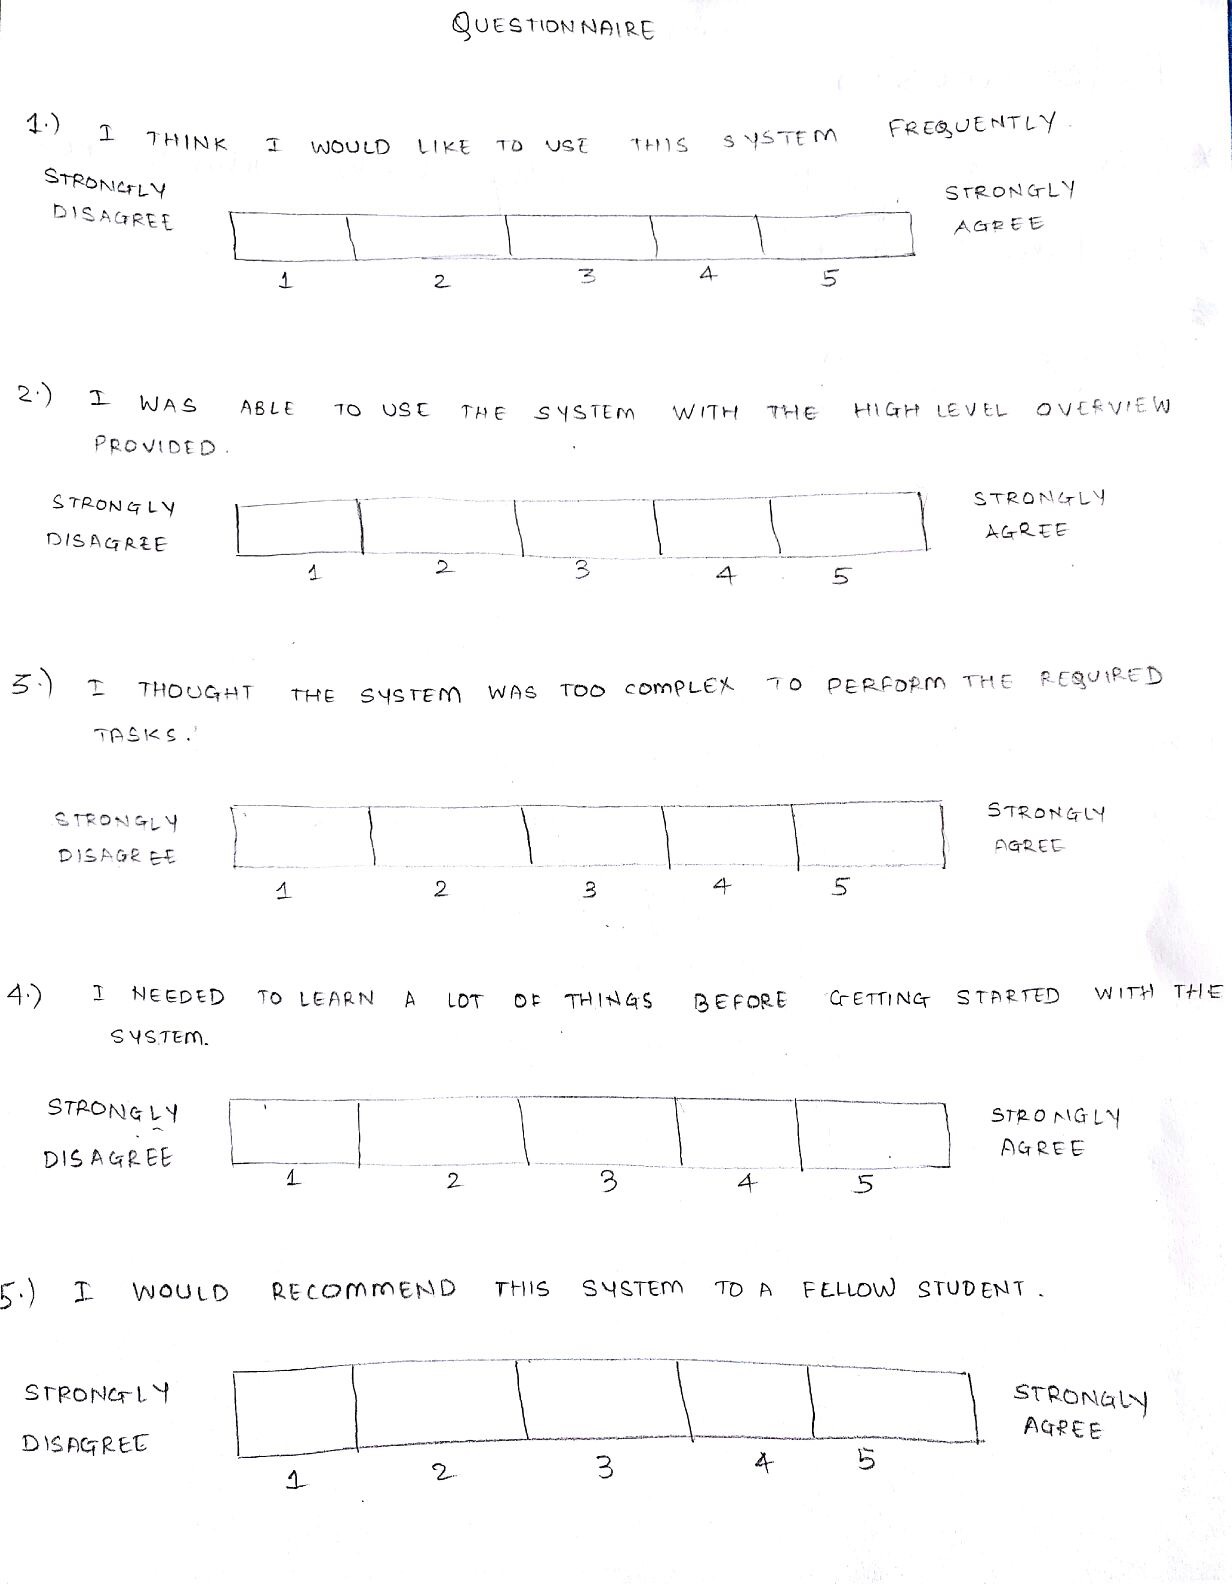 QUESTIONNAIRE
1.) I THINK I WOULD LIKE TO USE THIS SYSTEM FREQUENTLY.
STRONGLY DISAGREE
STRONGLY AGREE
1 2 3 4 5
2.) I WAS ABLE TO USE THE SYSTEM WITH THE HIGH LEVEL OVERVIEW
PROVIDED.
STRONGLY DISAGREE
STRONGLY AGREE
1 2 3 4 5
3.) I THOUGHT THE SYSTEM WAS TOO COMPLEX TO PERFORM THE REQUIRED
TASKS.
STRONGLY DISAGREE
STRONGLY AGREE
1 2 3 4 5
4.) I NEEDED TO LEARN A LOT OF THINGS BEFORE GETTING STARTED WITH THE
SYSTEM.
STRONGLY DISAGREE
STRONGLY AGREE
1 2 3 4 5
5.) I WOULD RECOMMEND THIS SYSTEM TO A FELLOW STUDENT.
STRONGLY DISAGREE
STRONGLY AGREE
1 2 3 4 5